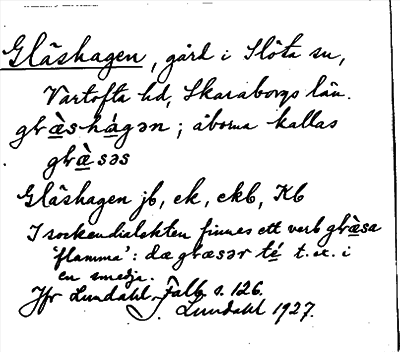 Gläshagen, gård i Slöta sn,
Vartofta hd, Skaraborgs län.
glæ̀shágən; åborna kallas
glæ̀səs
Gläshagen jb, ek, ekb, Kb
I sockendialekten finnes ett verb glæ̀sa
'flamma': dæ glæsər té t.ex. i
en smedja.
Jfr Lundahl, Falb. s. 126.
J. Lundahl 1927.